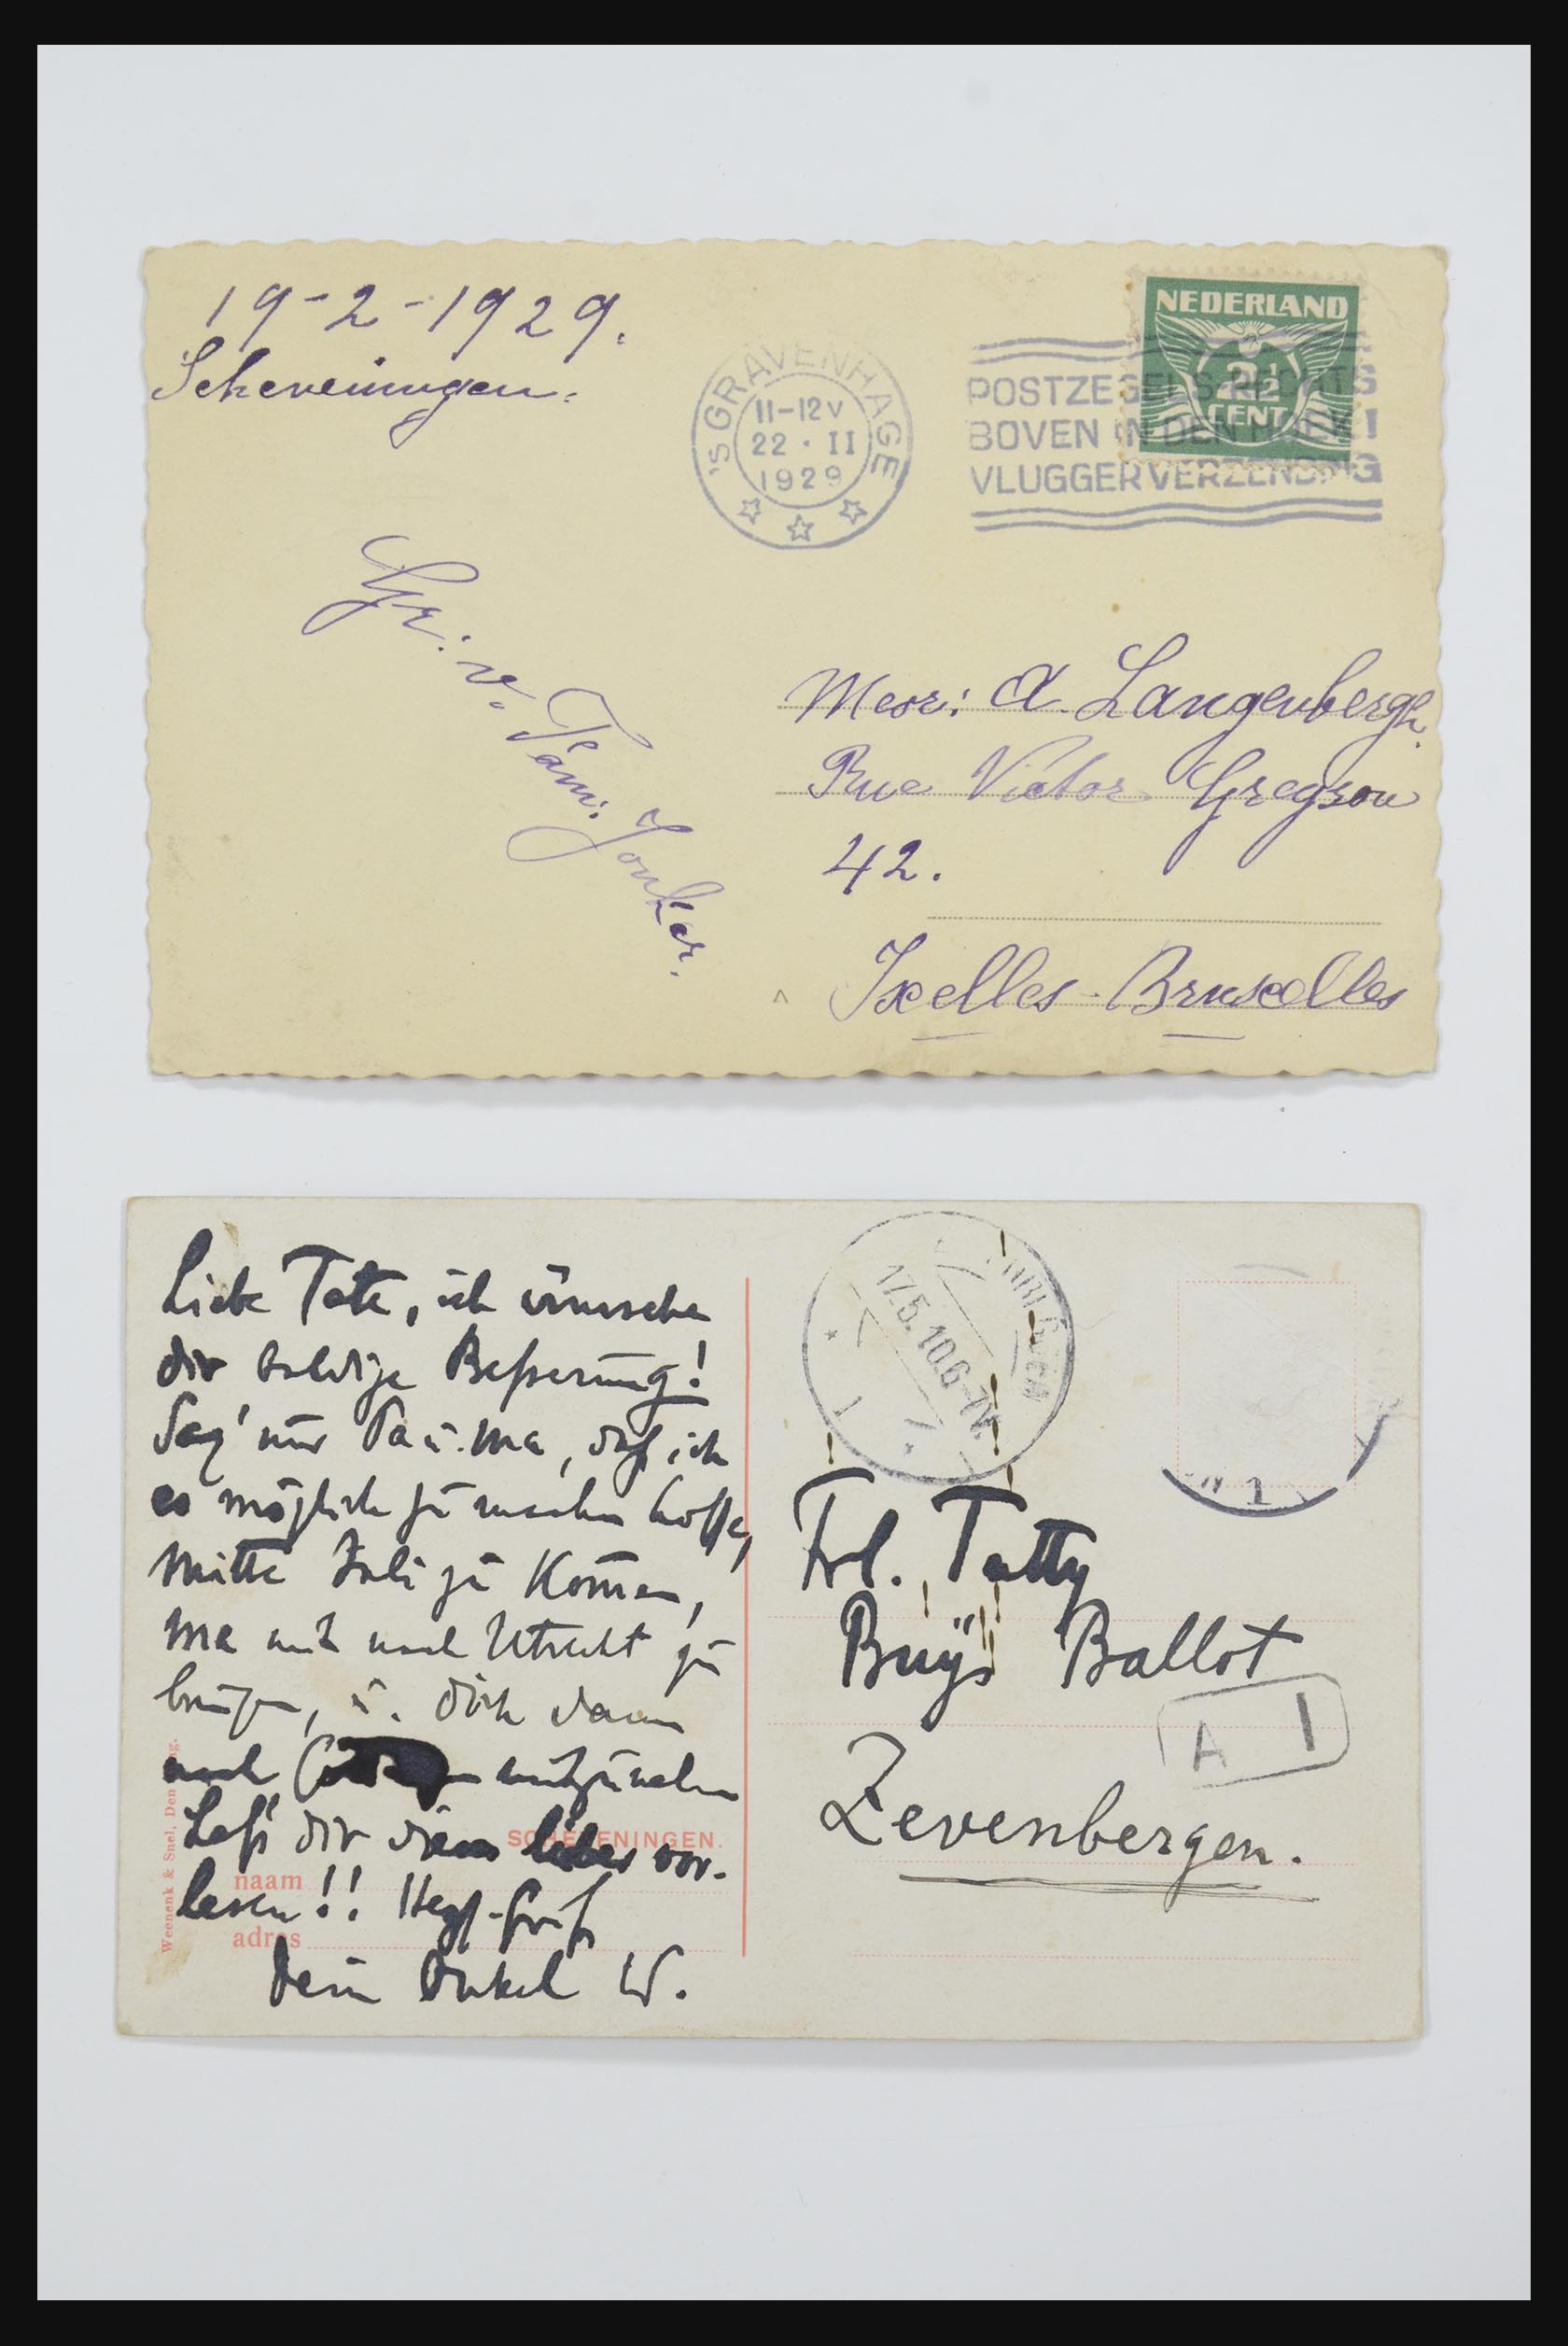 19-2-1929.
Scheveningen.
'S GRAVENHAGE
11-12V
22 · II
1929
NEDERLAND
2½
CENT
POSTZEGELS RECHTS
BOVEN IN DEN HOEK!
VLUGGER VERZENDING
Gr. v. Fam. Jonker.
Mevr: A. Langenbergh.
Rue Victor Gregson
42.
Ixelles - Bruxelles
Liebe Tate, ich wünsche
dir baldige Beßerung!
Sag' nur Pa u. Ma, daß ich
es möglich zu machen hoffe,
Mitte Juli zu Komen,
Ma mit nach Utrecht zu
bringen, u. dich dann
nach mitzunehmen
Laß dir dieses lieber vor-
lesen!!
Dein Onkel W.
SCHEVENINGEN.
naam
adres
Weenenk & Snel, Den
17.5.10.6-7V.
Frl. Tatty
Buÿs Ballot
A 1
Zevenbergen.